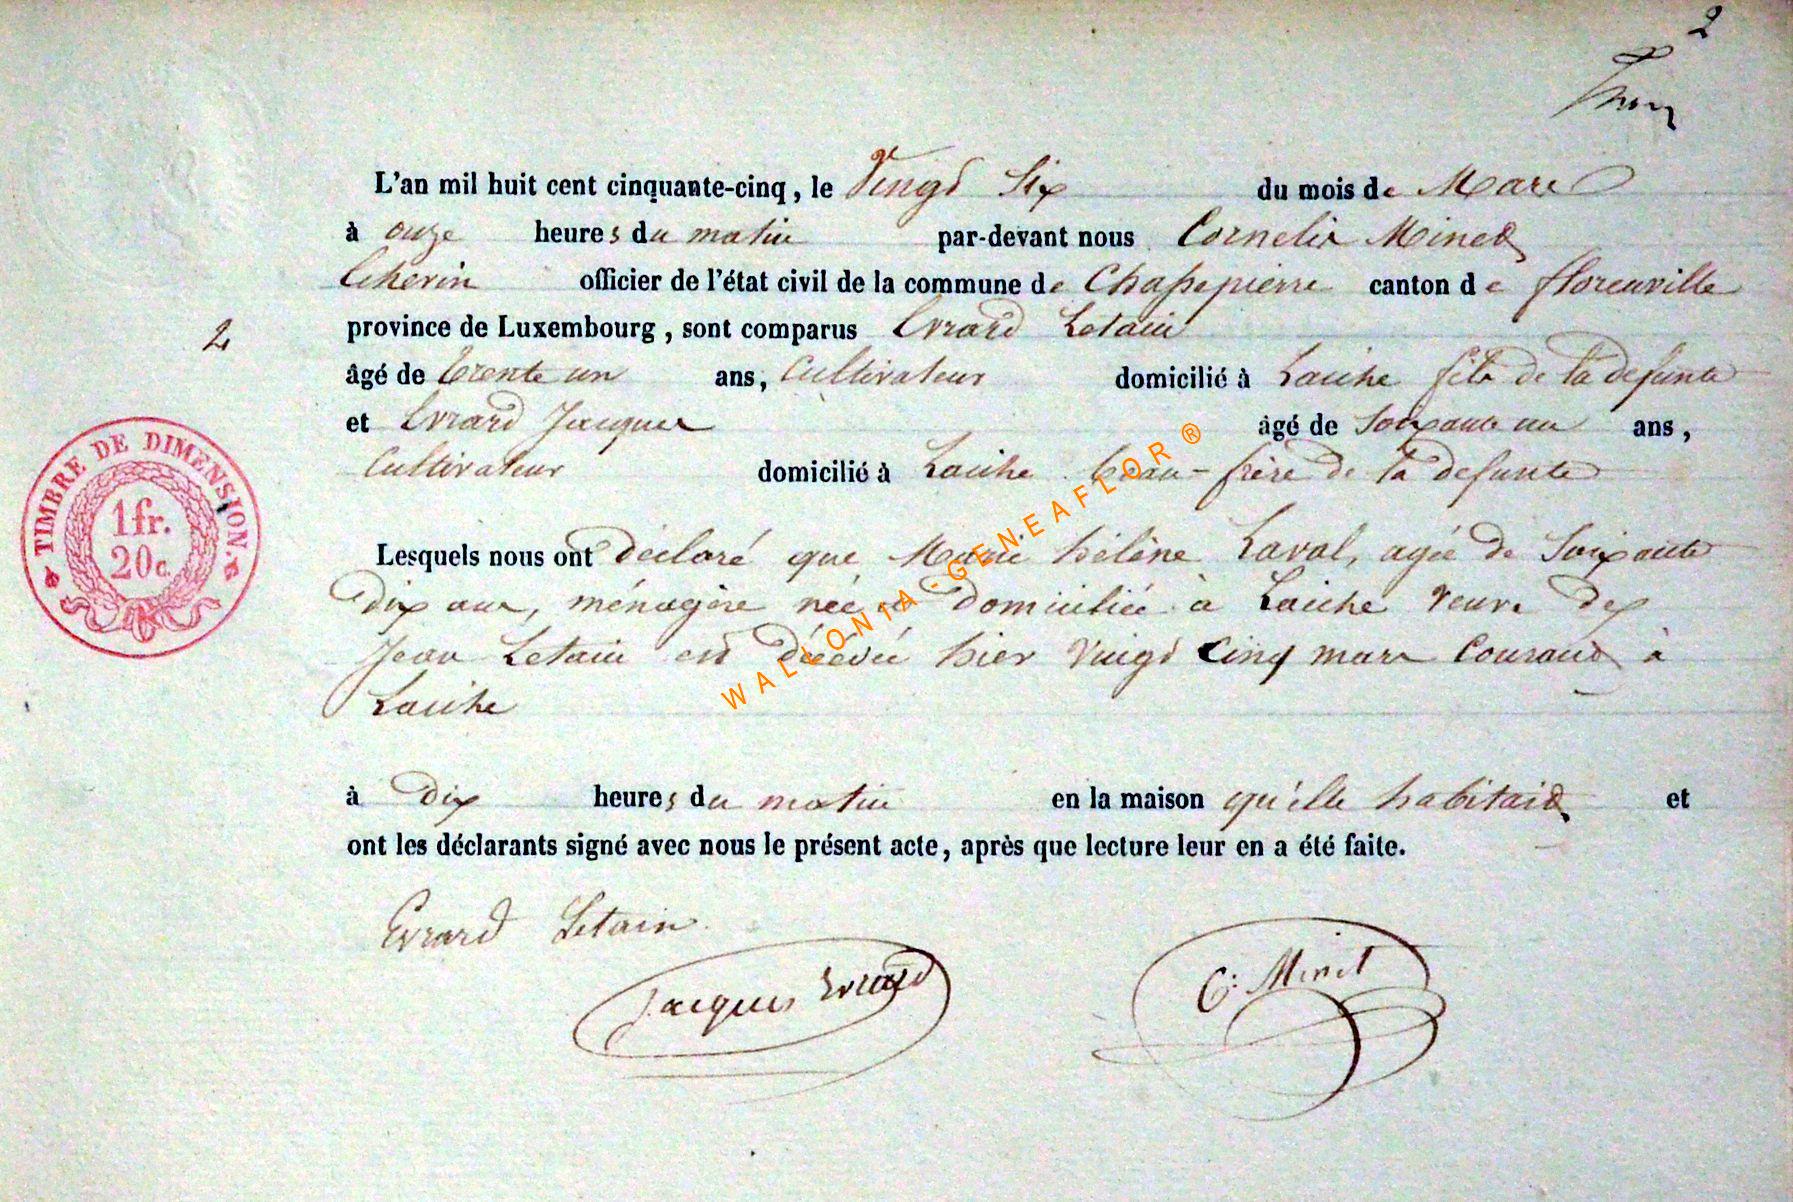 2
L'an mil huit cent cinquante-cinq, le Vingt Six du mois de Mars
à onze heures du matin par-devant nous Cornelis Minet
Echevin officier de l'état civil de la commune de Chassepierre canton de florenville
province de Luxembourg, sont comparus Evrard Letain
2
âgé de trente un ans, Cultivateur domicilié à Laiche fils de la defunte
et Evrard Jacques âgé de Soixante un ans,
Cultivateur domicilié à Laiche beau-frère de la defunte
TIMBRE DE DIMENSION.
1fr.
20c.
Lesquels nous ont déclaré que Marie hélène Laval, agée de Soixante
dix ans, ménagère née et domiciliée à Laiche veuve de
Jean Letain est décédée hier vingt Cinq mars Courant à
Laiche
à dix heures du matin en la maison qu'elle habitait et
ont les déclarants signé avec nous le présent acte, après que lecture leur en a été faite.
Evrard Letain
Jacques Evrard
C: Minet
WALLONIA-GENEAFLOR ®